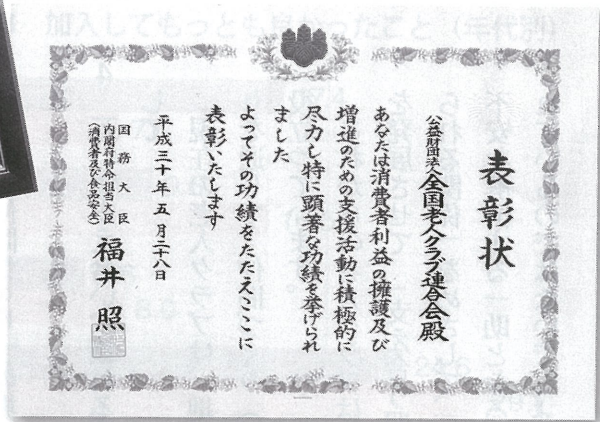 加入してもっとも良かったこと（年代別）
表彰状
公益財団法人全国老人クラブ連合会殿
あなたは消費者利益の擁護及び
増進のための支援活動に積極的に
尽力し特に顕著な功績を挙げられ
ました
よってその功績をたたえここに
表彰いたします
平成三十年五月二十八日
国務大臣
内閣府特命担当大臣
（消費者及び食品安全）
福井照